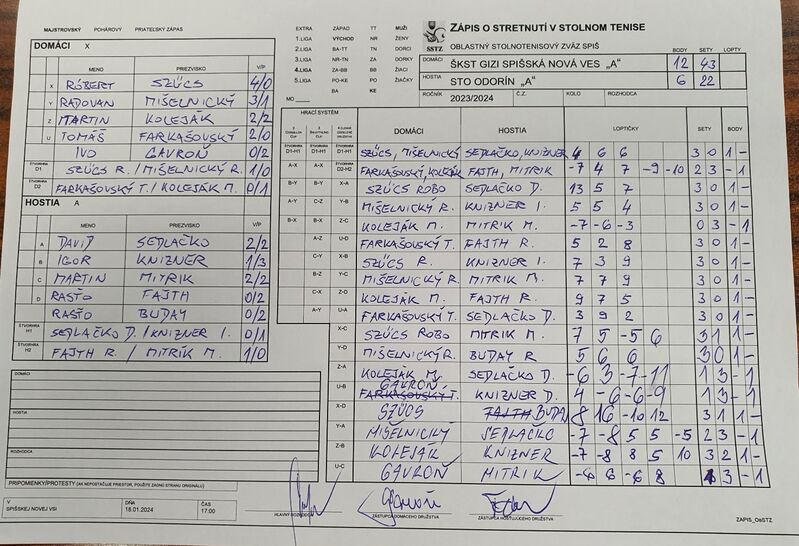 MAJSTROVSKÝ POHÁROVÝ PRIATEĽSKÝ ZÁPAS
EXTRA ZÁPAD TT MUŽI
1.LIGA VÝCHOD NR ŽENY
2.LIGA BA-TT TN DORCI
3.LIGA NR-TN ZA DORKY
4.LIGA ZA-BB BB ŽIACI
5.LIGA PO-KE PO ŽIAČKY
BA KE
MO
SSTZ
ZÁPIS O STRETNUTÍ V STOLNOM TENISE
OBLASTNÝ STOLNOTENISOVÝ ZVÄZ SPIŠ
BODY SETY LOPTY
DOMÁCI ŠKST GIZI SPIŠSKÁ NOVÁ VES „A" 12 43
HOSTIA STO ODORÍN „A" 6 22
ROČNÍK 2023/2024 Č.Z. KOLO ROZHODCA
DOMÁCI X
MENO PRIEZVISKO V/P
X RÓBERT SZÜCS 4/0
Y RADOVAN MIŠELNICKÝ 3/1
Z MARTIN KOLEJÁK 2/2
U TOMÁŠ FARKAŠOVSKÝ 2/0
IVO GAVROŇ 0/2
ŠTVORHRA D1 SZÜCS R. / MIŠELNICKÝ R. 1/0
ŠTVORHRA D2 FARKAŠOVSKÝ T. / KOLEJÁK M. 0/1
HOSTIA A
MENO PRIEZVISKO V/P
A DAVID SEDLAČKO 2/2
B IGOR KNIZNER 1/3
C MARTIN MITRIK 2/2
D RASŤO FAJTH 0/2
RASŤO BUDAY 0/2
ŠTVORHRA H1 SEDLAČKO D. / KNIZNER I. 0/1
ŠTVORHRA H2 FAJTH R. / MITRIK M. 1/0
DOMÁCI
HOSTIA
ROZHODCA
PRIPOMIENKY/PROTESTY (AK NEPOSTAČUJE PRIESTOR, POUŽITE ZADNÚ STRANU ORIGINÁLU)
V SPIŠSKEJ NOVEJ VSI DŇA 18.01.2024 ČAS 17:00
HRACÍ SYSTÉM
DOMÁCI HOSTIA LOPTIČKY SETY BODY
D1-H1 D1-H1 D1-H1 SZÜCS, MIŠELNICKÝ SEDLAČKO, KNIZNER 4 6 6 3 0 1 -
A-X A-X D2-H2 FARKAŠOVSKÝ, KOLEJÁK FAJTH, MITRIK -7 4 7 -9 -10 2 3 - 1
B-Y B-Y X-A SZÜCS ROBO SEDLAČKO D. 13 5 7 3 0 1 -
A-Y C-Z Y-B MIŠELNICKÝ R. KNIZNER I. 5 5 4 3 0 1 -
B-X B-X Z-C KOLEJÁK M. MITRIK M. -7 -6 -3 0 3 - 1
A-Z U-D FARKAŠOVSKÝ T. FAJTH R. 5 2 8 3 0 1 -
C-Y X-B SZÜCS R. KNIZNER I. 7 3 9 3 0 1 -
B-Z Y-C MIŠELNICKÝ R. MITRIK M. 7 7 9 3 0 1 -
C-X Z-D KOLEJÁK M. FAJTH R. 9 7 5 3 0 1 -
A-Y U-A FARKAŠOVSKÝ T. SEDLAČKO D. 3 9 2 3 0 1 -
X-C SZÜCS ROBO MITRIK M. 7 5 -5 6 3 1 1 -
Y-D MIŠELNICKÝ R. BUDAY R 5 6 6 3 0 1 -
Z-A KOLEJÁK M. SEDLAČKO D. -6 3 -7 -11 1 3 - 1
U-B FARKAŠOVSKÝ T. GAVROŇ KNIZNER D. 4 -6 -6 -9 1 3 - 1
X-D SZÜCS FAJTH BUDA 8 16 -10 12 3 1 1 -
Y-A MIŠELNICKÝ SEDLAČKO -7 -8 5 5 -5 2 3 - 1
Z-B KOLEJÁK KNIZNER -7 -8 8 5 10 3 2 1 -
U-C GAVROŇ MITRIK -6 6 -6 -8 1 3 - 1
HLAVNÝ ROZHODCA ZÁSTUPCA DOMÁCEHO DRUŽSTVA ZÁSTUPCA HOSŤUJÚCEHO DRUŽSTVA
ZAPIS_ObSTZ